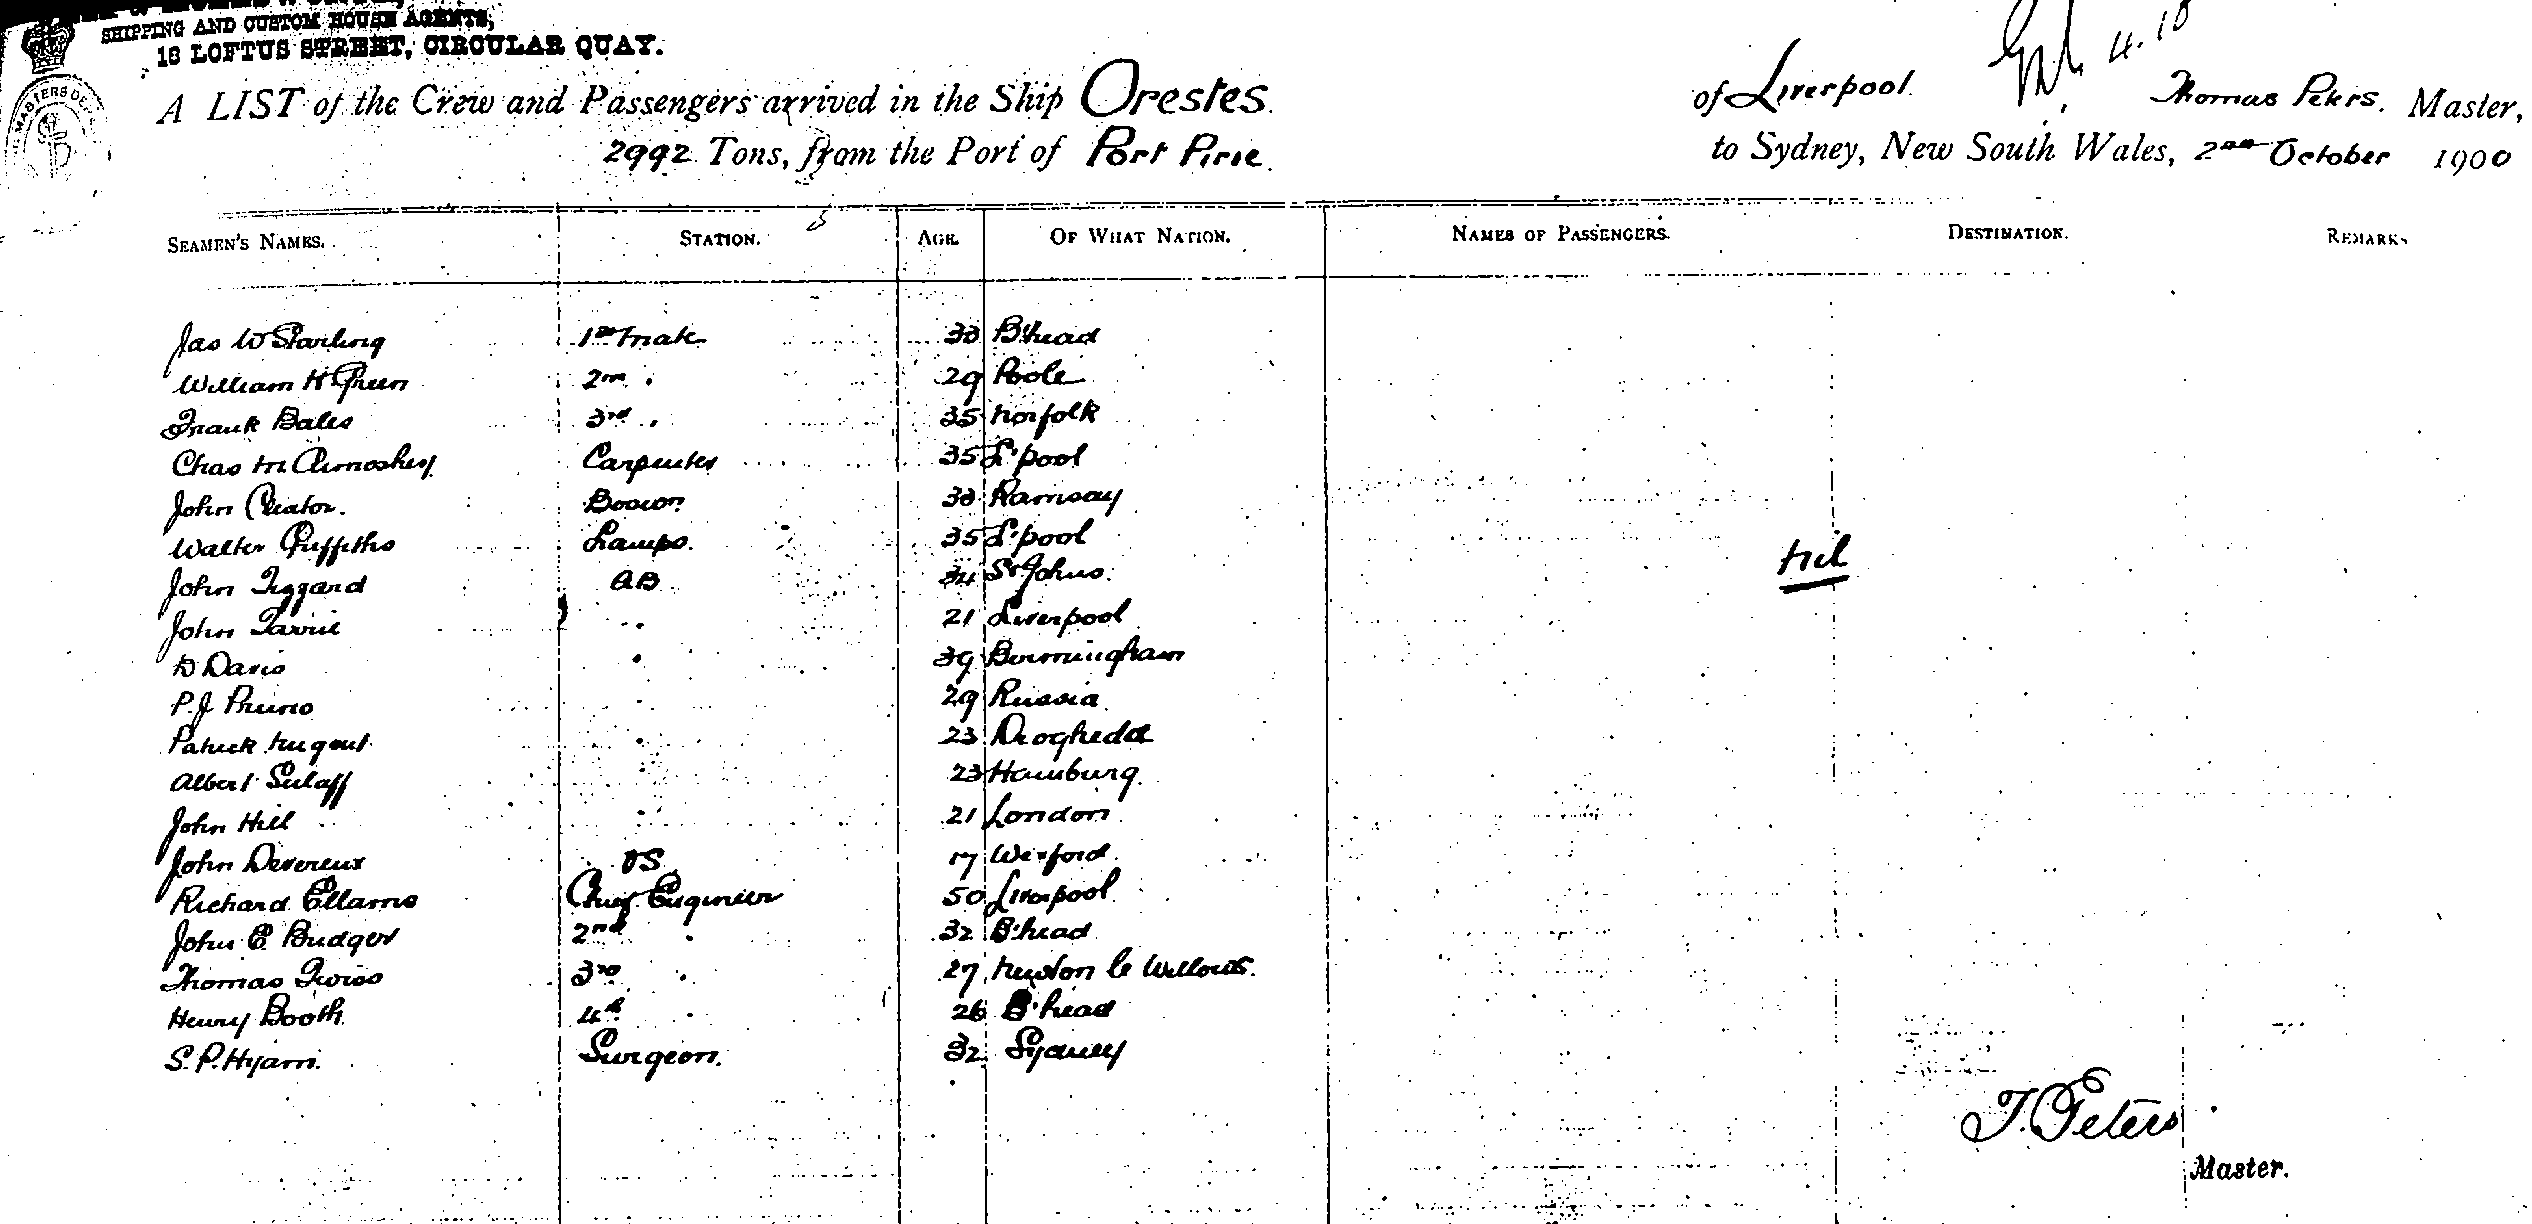 SHIPPING AND CUSTOM HOUSE AGENTS,
18 LOFTUS STREET, CIRCULAR QUAY.
4.10
MASTERS
A LIST of the Crew and Passengers arrived in the Ship Orestes. of Liverpool. Thomas Peters. Master,
2992 Tons, from the Port of Port Pirie. to Sydney, New South Wales, 2nd October 1900
SEAMEN'S NAMES. STATION. AGE. OF WHAT NATION. NAMES OF PASSENGERS. DESTINATION. REMARKS
Jas W Starling 1st Mate 38 B'head
William H Green 2nd " 29 Poole
Frank Bales 3rd " 35 Norfolk
Chas Carpenter 35 L'pool
John Bosun 38 Ramsay
Walter Griffiths Lamps. 35 L'pool
John Tiggard AB 34 St Johns.
John " 21 Liverpool
D Davis " 39 Birmingham
P.J Pruno " 29 Russia
Patrick Nugent " 23 Drogheda
Albert " 23 Hamburg
John Hill " 21 London
John Devereux OS 17 Wexford
Richard Ellams Chief Engineer 50 Liverpool
John E Budger 2nd " 32 B'head
Thomas Twiss 3rd " 27 Newton le Willows.
Henry Booth 4th " 26 B'head
S. P. Hyam. Surgeon. 32 Sydney
Nil
T. Peters
Master.